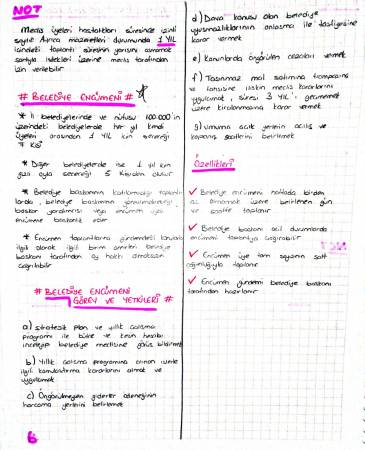 NOT
Meclis üyeleri hastalıkları süresince izinli
sayılır. Ayrıca mazeretleri durumunda 1 YIL
içindeki toplantı süresinin yarısını aşmamak
şartıyla istekleri üzerine meclis tarafından
izin verilebilir
# BELEDİYE ENCÜMENİ #
* İl belediyelerinde ve nüfusu 100.000'in
üzerindeki belediyelerde her yıl kendi
üyeleri arasından 1 YIL için seçeceği
7 Kişi
* Diğer belediyelerde ise 1 yıl için
gizli oyla seçeceği 5 kişiden oluşur
* Belediye başkanının katılamadığı toplantı
larda, belediye başkanının görevlendireceği
başkan yardımcısı veya encümen üyesi
encümene başkanlık eder
* Encümen toplantılarına gündemdeki konularla
ilgili olarak ilgili birim amirleri belediye
başkanı tarafından oy hakkı olmaksızın
çağrılabilir
# BELEDİYE ENCÜMENİ
GÖREV VE YETKİLERİ #
a) stratejik plan ve yıllık çalışma
programı ile bütçe ve kesin hesabı
inceleyip belediye meclisine görüş bildirmek
b) Yıllık çalışma programına alınan işlerle
ilgili kamulaştırma kararlarını almak ve
uygulamak
c) Öngörülmeyen giderler ödeneğinin
harcama yerlerini belirlemek
6
d) Dava konusu olan belediye
uyuşmazlıklarının anlaşma ile tasfiyesine
karar vermek
e) Kanunlarda öngörülen cezaları vermek
f) Taşınmaz mal satımına, trampasına
ve tahsisine ilişkin meclis kararlarını
uygulamak, süresi 3 YIL'ı geçmemek
üzere kiralanmasına karar vermek
g) Umuma açık yerlerin açılış ve
kapanış saatlerini belirlemek
Özellikleri
✓ Belediye encümeni haftada birden
az olmamak üzere belirlenen gün
ve saatte toplanır
✓ Belediye başkanı acil durumlarda
encümeni toplantıya çağırabilir
✓ Encümen üye tam sayısının salt
çoğunluğuyla toplanır
✓ Encümen gündemi belediye başkanı
tarafından hazırlanır